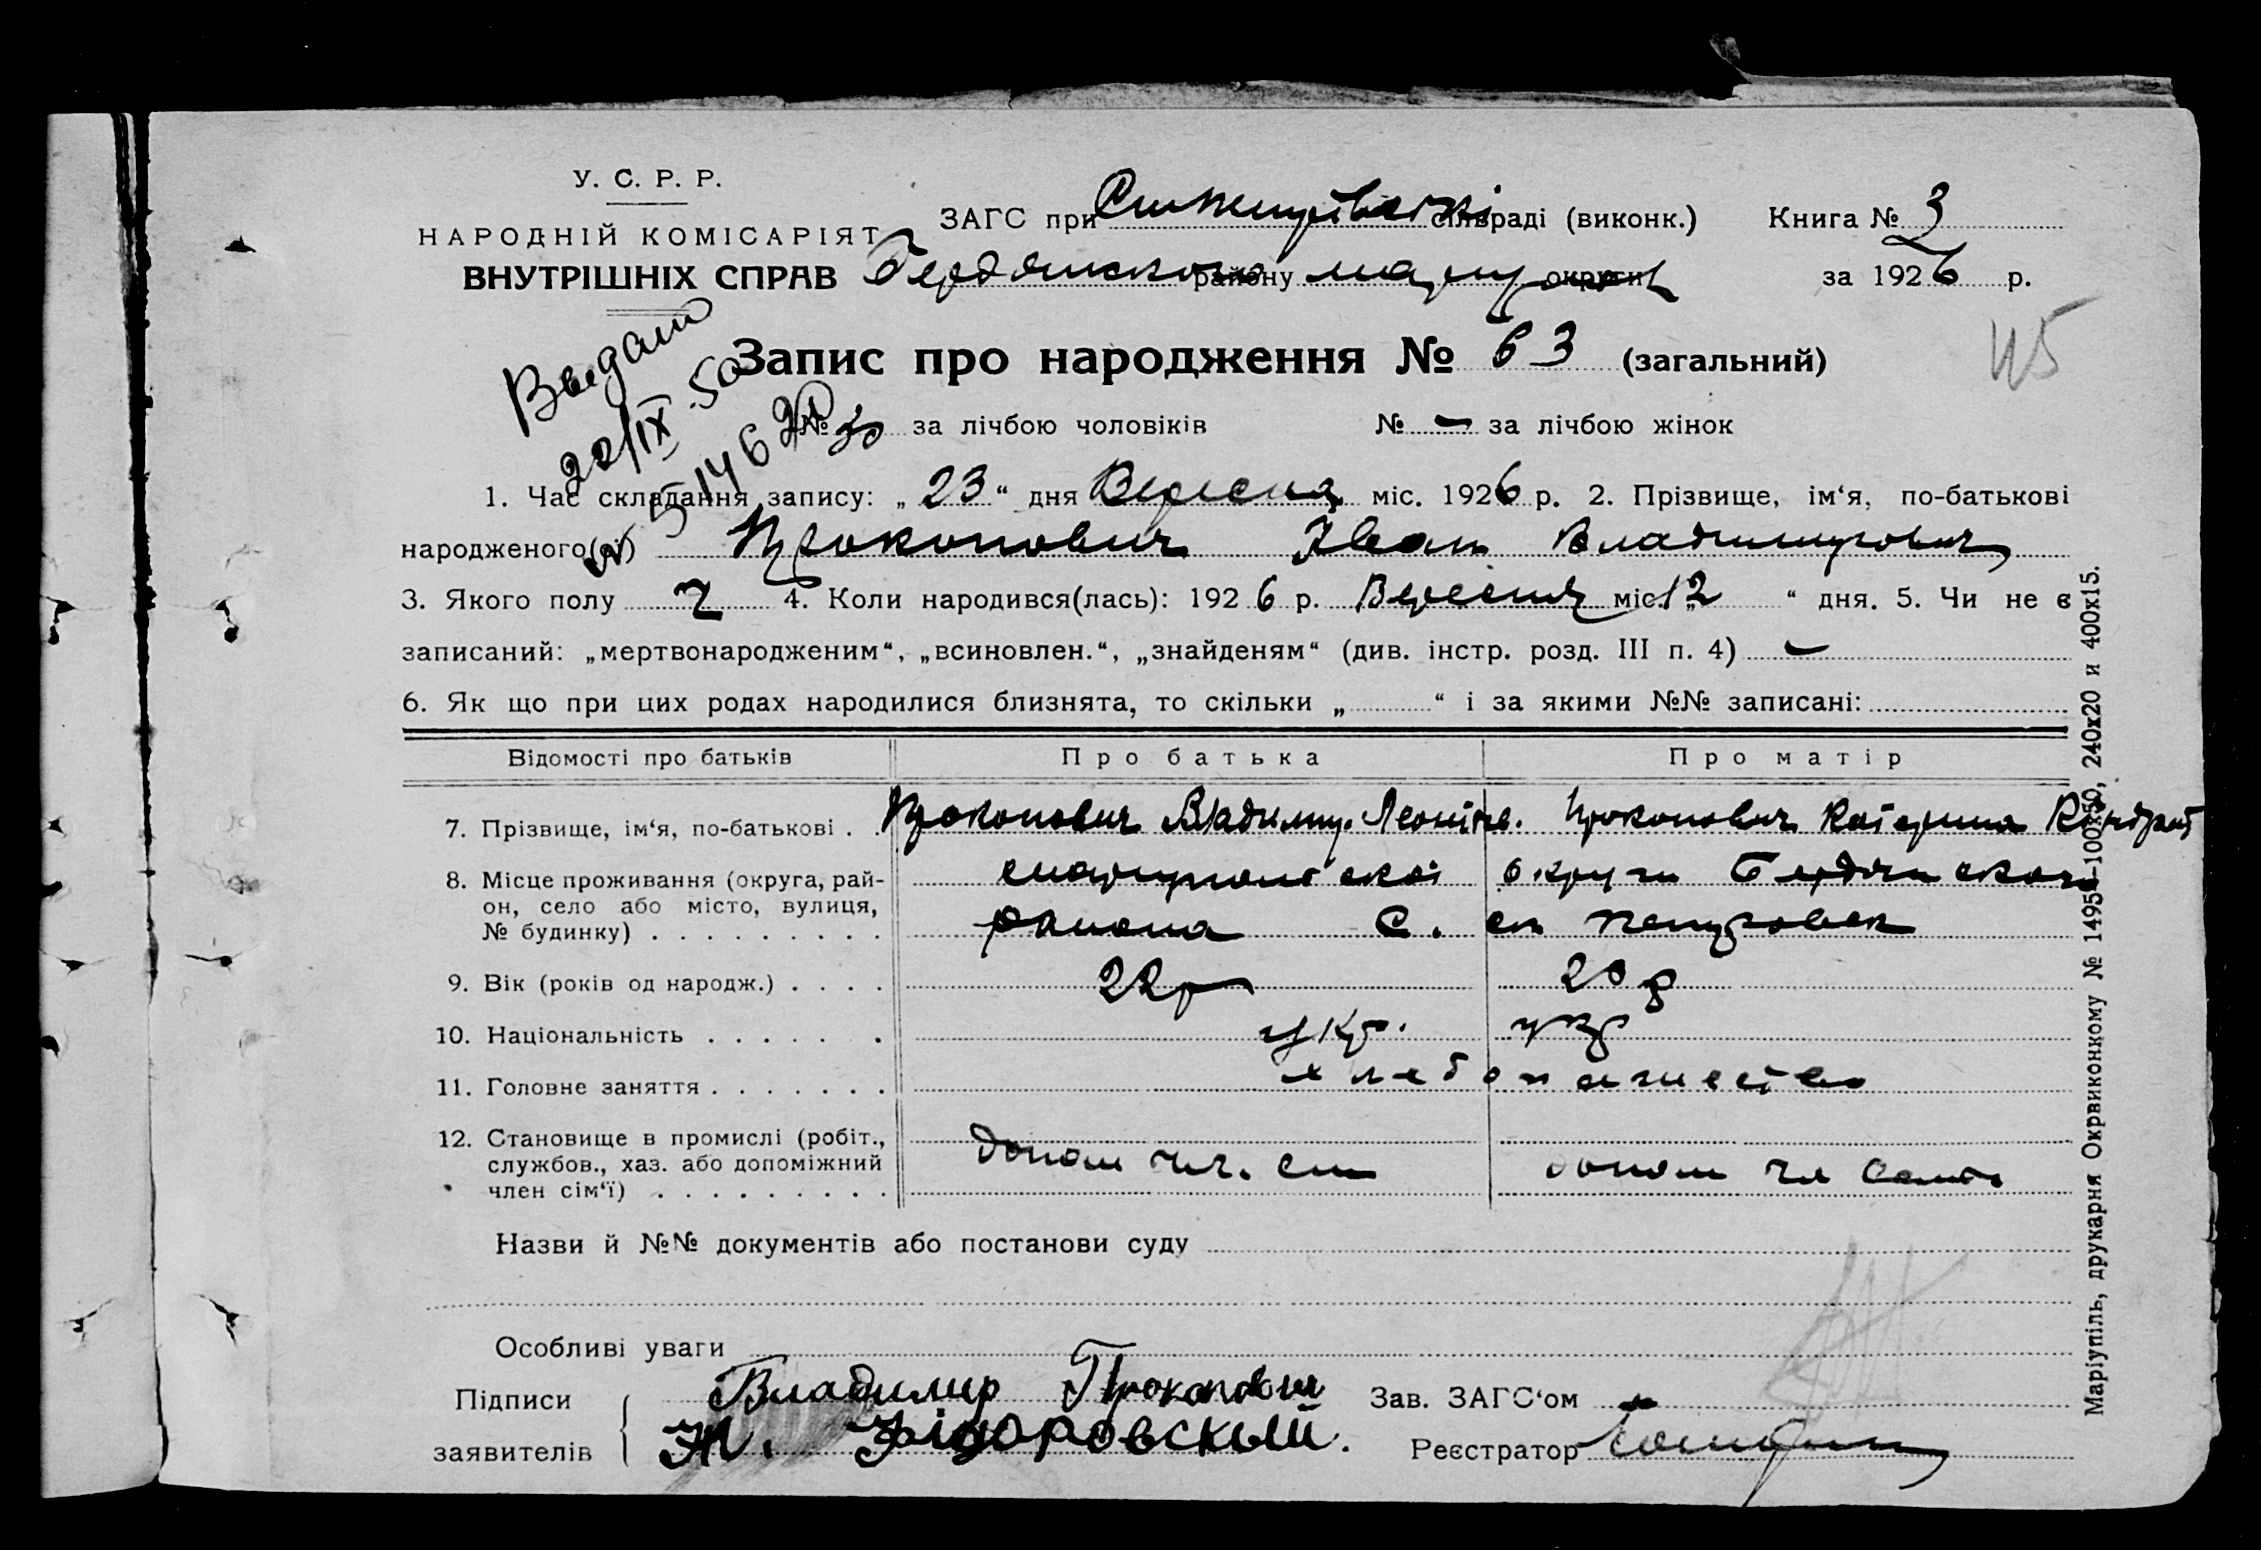 У. С. Р. Р.
НАРОДНІЙ КОМІСАРІЯТ
ВНУТРІШНІХ СПРАВ
ЗАГС при сільраді (виконк.) Книга № 3
району округи за 1926 р.
Запис про народження № 63 (загальний)
Выдано
20/IX 50
№ 30 за лічбою чоловіків № – за лічбою жінок
1. Час складання запису: „23“ дня Вересня міс. 1926 р. 2. Прізвище, ім‘я, по-батькові
народженого(ої) Прокопович Іван Владимирович
3. Якого полу Ч 4. Коли народився(лась): 1926 р. Вересня міс. „12“ дня. 5. Чи не є
записаний: „мертвонародженим“, „всиновлен.“, „знайденям“ (див. інстр. розд. III п. 4) –
6. Як що при цих родах народилися близнята, то скільки „ “ і за якими №№ записані:
Відомості про батьків Про батька Про матір
7. Прізвище, ім‘я, по-батькові . . Прокопович Владимир. Прокопович Катерина Кондрат
8. Місце проживання (округа, рай-
он, село або місто, вулиця,
№ будинку) . . . . . . . . .
округи Бердянского
района с.
9. Вік (років од народж.) . . . . 22 р 20 р
10. Національність . . . . . . укр. укр
11. Головне заняття . . . . . . . хлебопашество
12. Становище в промислі (робіт.,
службов., хаз. або допоміжний
член сім‘ї) . . . . . . . . .
допом чл. сем допом чл семи
Назви й №№ документів або постанови суду
Особливі уваги
Підписи
заявителів
Владимир Прокопович
Зав. ЗАГС‘ом
Реєстратор
Маріупіль, друкарня Окрвиконкому № 1495–100х50, 240х20 и 400х15.